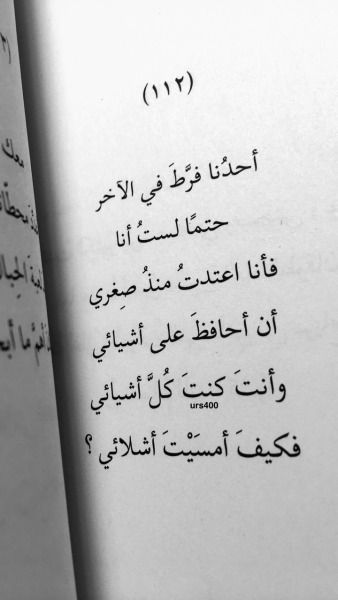 (١١٢)
أحدُنا فرَّطَ في الآخر
حتمًا لستُ أنا
فأنا اعتدتُ منذُ صِغري
أن أحافظَ على أشيائي
وأنتَ كنتَ كُلَّ أشيائي
urs400
فكيفَ أمسَيْتَ أشلائي ؟
معك